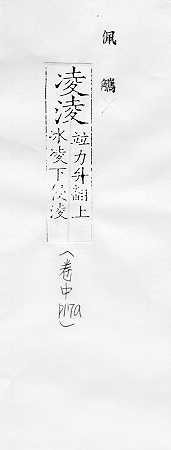 佩觿
凌淩
竝力升翻上
冰凌下侵淩
(卷中
p17a)